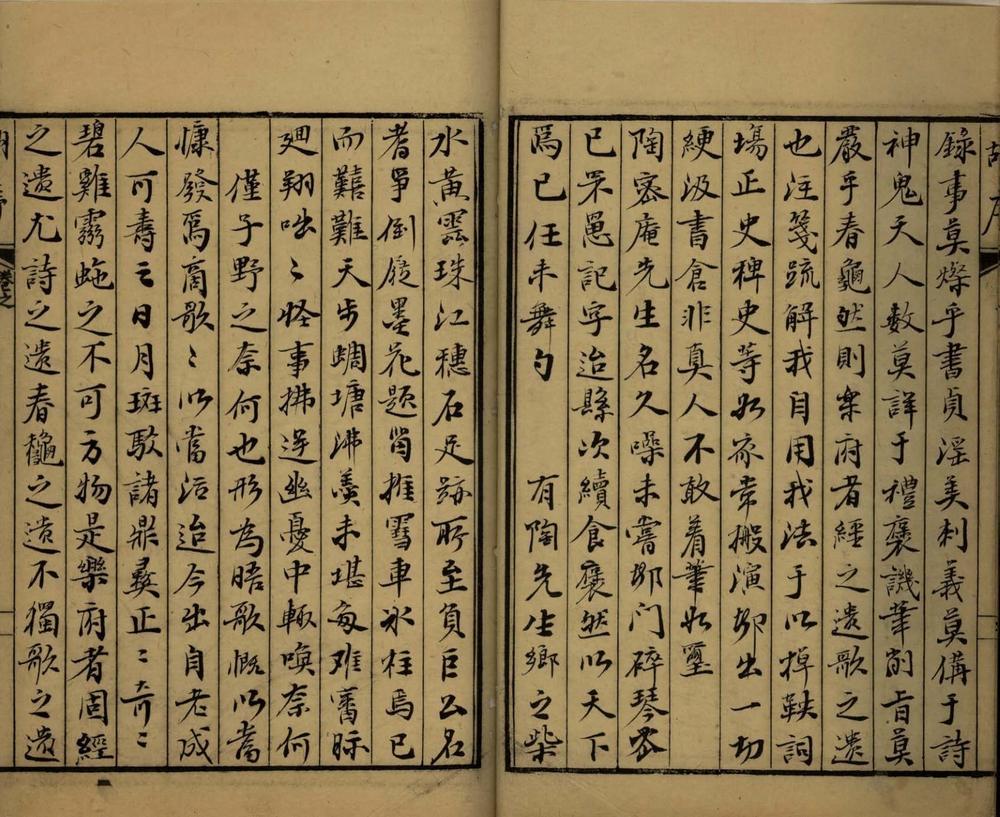 錄事莫燦乎書貞淫美刺義莫備于詩
神鬼天人數莫詳于禮褒譏筆削旨莫
嚴乎春龝然則樂府者經之遺歌之遺
也注箋疏解我自用我法于以掉鞅詞
塲正史稗史等如家常搬演卻出一切
綆汲書倉非真人不敢着筆如壐
陶密庵先生名久噪未嘗卻門碎琴密
已罘罳記字迨縣次續食褎然以天下
爲已任未舞勺 有陶先生鄉之柴
水黃雲珠江穗石足跡所至負巨公名
者爭倒屣墨花題
而囏難天步蜩螗沸羹未堪
廻翔咄〻怪事拂逆幽憂中輒喚奈何
僅子野之奈何也形為晤歌慨以當
慷發焉商歌〻以當泣迨今出自老成
人可壽之日月斑駁諸鼎彝正〻奇〻
碧雞靈虵之不可方物是樂府者固經
之遺尤詩之遺春龝之遺不獨歌之遺